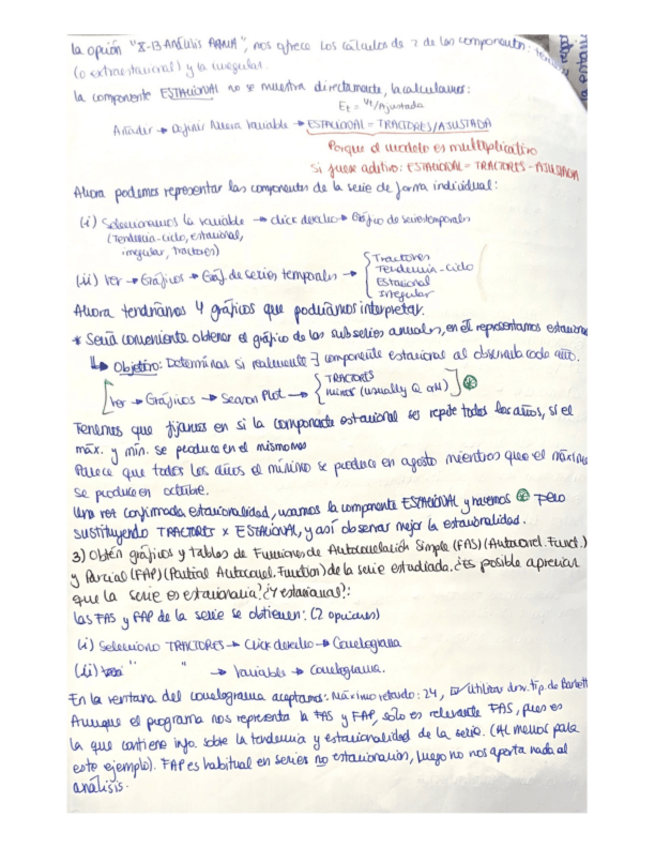 la opción "X-13-Análisis ARIMA", nos ofrece los cálculos de 2 de las componentes:
(o extraestacional) y la irregular.
la componente ESTACIONAL no se muestra directamente, la calculamos:
Et = Yt/Ajustada
Añadir → Definir Nueva Variable → ESTACIONAL = TRACTORES/AJUSTADA
Porque el modelo es multiplicativo
Si fuese aditivo: ESTACIONAL = TRACTORES - AJUSTADA
Ahora podemos representar las componentes de la serie de forma individual:
(i) Seleccionamos la variable → click derecho → Gráfico de series temporales
(Tendencia-ciclo, estacional,
irregular, tractores)
(ii) Ver → Gráficos → Gráf. de series temporales → { Tractores
Tendencia-ciclo
Estacional
Irregular
Ahora tendríamos 4 gráficos que podríamos interpretar.
* Sería conveniente obtener el gráfico de las subseries anuales, en él representamos
↳ Objetivo: Determinar si realmente ∃ componente estacional al observarla cada año.
[Ver → Gráficos → Season Plot → { TRACTORES
(usually Q or M) ] ⊛
Tenemos que fijarnos en si la componente estacional se repite todos los años, si el
máx. y mín. se produce en el mismo mes
Parece que todos los años el mínimo se produce en agosto mientras que el
se produce en octubre.
Una vez confirmada estacionalidad, usamos la componente ESTACIONAL y hacemos ⊛ pero
sustituyendo TRACTORES x ESTACIONAL, y así observar mejor la estacionalidad.
3) Obtén gráficos y tablas de Funciones de Autocorrelación Simple (FAS) (Autocorrel. Funct.)
y Parcial (FAP) (Partial Autocorrel. Function) de la serie estudiada. ¿Es posible apreciar
que la serie es estacionaria? ¿Y estacional?:
las FAS y FAP de la serie se obtienen: (2 opciones)
(i) Selecciono TRACTORES → Click derecho → Correlograma
(ii) " " → Variable → Correlograma.
En la ventana del correlograma aceptamos: Máximo retardo: 24, ☑ Utilizar desv. típ. de Bartlett
Aunque el programa nos representa la FAS y FAP, solo es relevante FAS, pues es
la que contiene info. sobre la tendencia y estacionalidad de la serie. (Al menos para
este ejemplo). FAP es habitual en series no estacionarias, luego no nos aporta nada al
análisis.